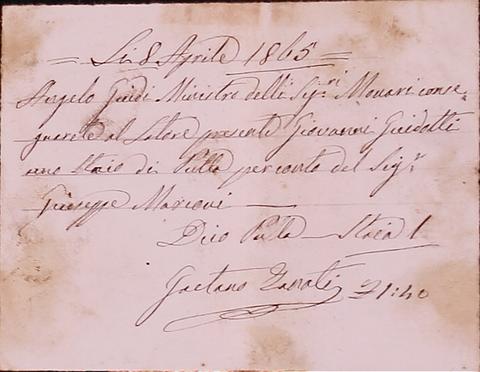 = Li 8 Aprile 1865 =
Angelo Guidi Ministro delli Sig.ri Monari conse=
gnarete al Latore presente Giovanni Guidotti
uno Staio di Pulla per conto del Sig.r
Giuseppe Marconi —
Dico Pulla — Staia 1
Gaetano 1:40